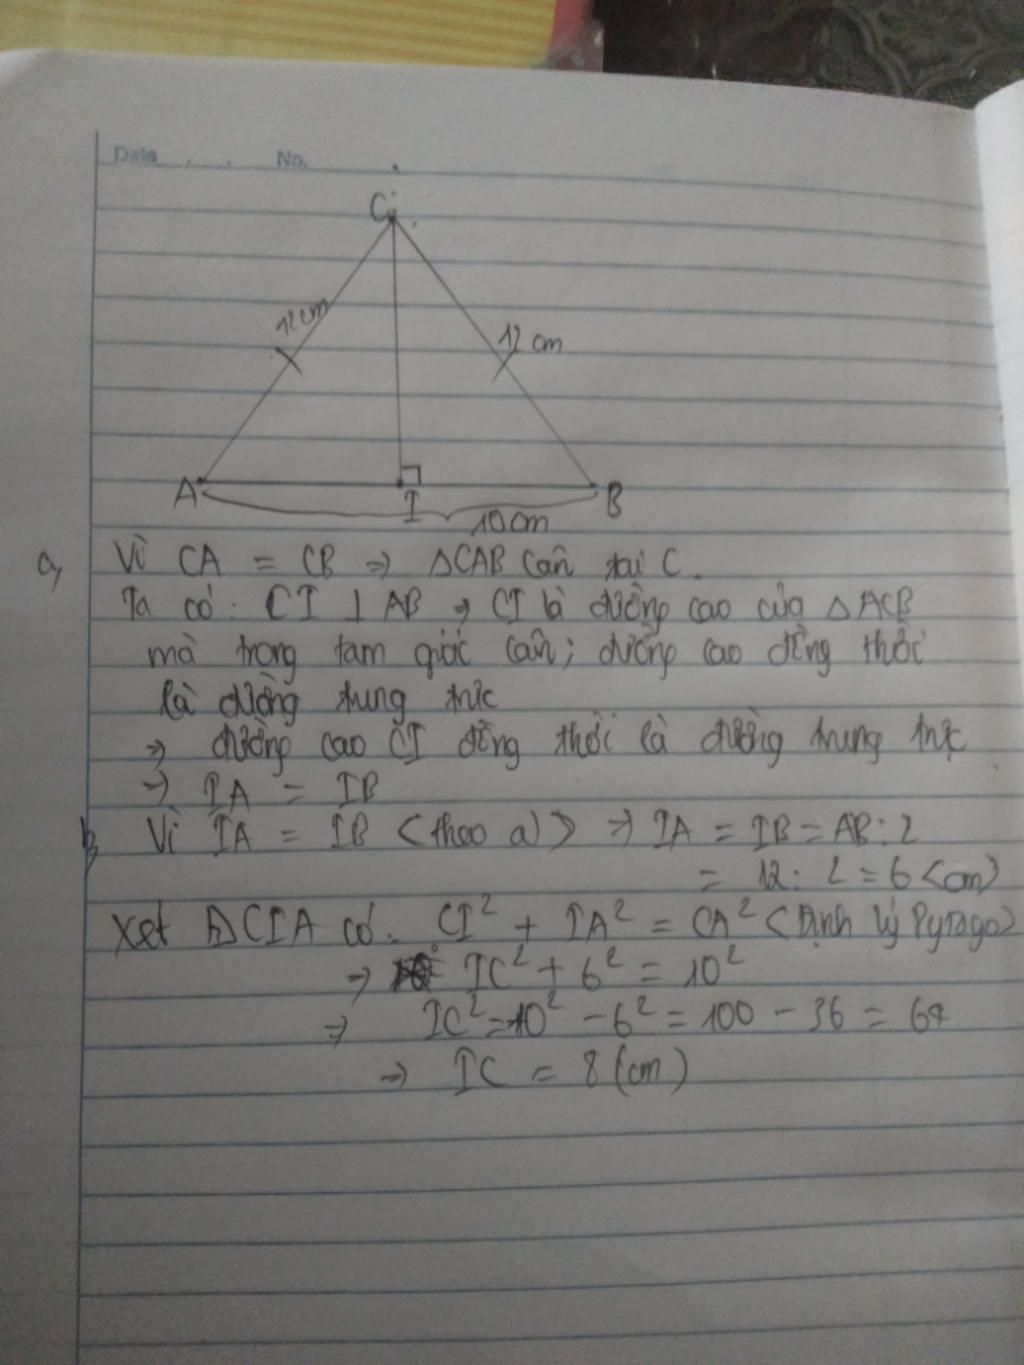 Date . . No. .
C
12cm
12 cm
A
I
B
10cm
a, Vì CA = CB => ΔCAB cân tại C.
Ta có: CI ⊥ AB => CI là đường cao của ΔACB
mà trong tam giác cân; đường cao đồng thời
là đường trung trực
=> đường cao CI đồng thời là đường trung trực
=> IA = IB
b, Vì IA = IB <theo a)> => IA = IB = AB: 2
= 12: 2 = 6 <cm>
Xét ΔCIA có: CI² + IA² = CA² <Định lý Pytago>
=> IC² + 6² = 10²
=> IC² = 10² - 6² = 100 - 36 = 64
=> IC = 8 (cm)